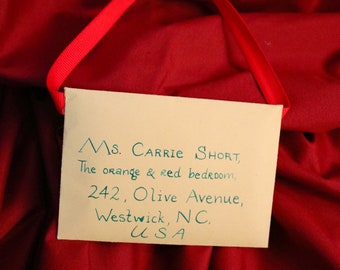 Ms. Carrie Short,
The orange & red bedroom,
242, Olive Avenue,
Westwick, N.C.
USA